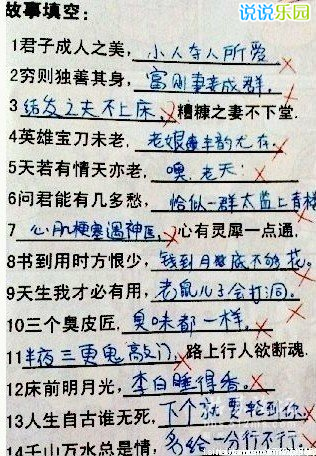 说说乐园
故事填空:
1君子成人之美,小人夺人所爱
2穷则独善其身,富则妻妾成群,
3结发之夫不上床,糟糠之妻不下堂.
4英雄宝刀未老,老娘丰韵尤存.
5天若有情天亦老,噢,老天:
6问君能有几多愁,恰似一群太监上青楼
7心肌梗塞遇神医,心有灵犀一点通,
8书到用时方恨少,钱到月底不够花。
9天生我才必有用,老鼠儿子会打洞。
10三个臭皮匠,臭味都一样,
11半夜三更鬼敲门,路上行人欲断魂.
12床前明月光,李白睡得香。
13人生自古谁无死,下个就要轮到你.
14千山万水总是情,多给一分行不行。